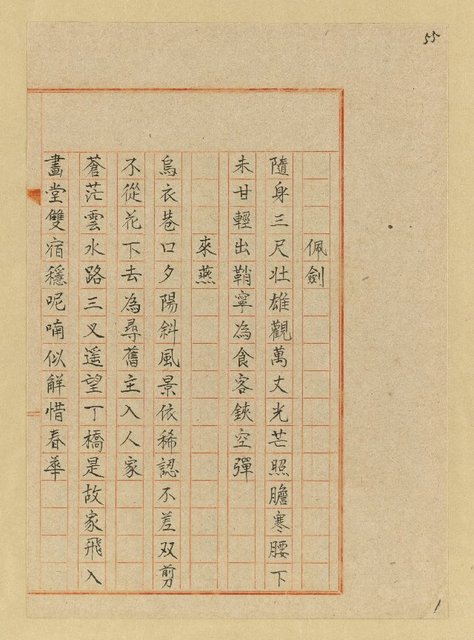 55
佩劍
隨身三尺壯雄觀萬丈光芒照膽寒腰下
未甘輕出鞘寧為食客鋏空彈
來燕
烏衣巷口夕陽斜風景依稀認不差双剪
不從花下去為尋舊主入人家
蒼茫雲水路三叉遥望丁橋是故家飛入
畫堂雙宿穩呢喃似解惜春華
1